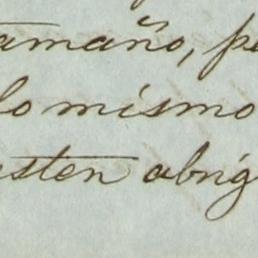 tamaño, pe
lo mismo
esten abrig